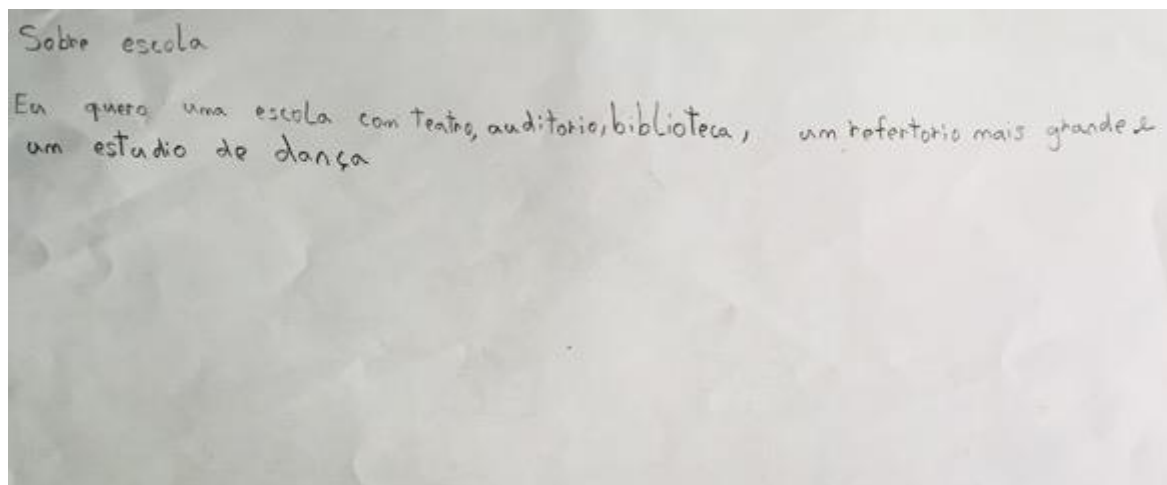 Sobre escola
Eu quero uma escola com teatro, auditorio, biblioteca, um refertorio mais grande e
um estudio de dança